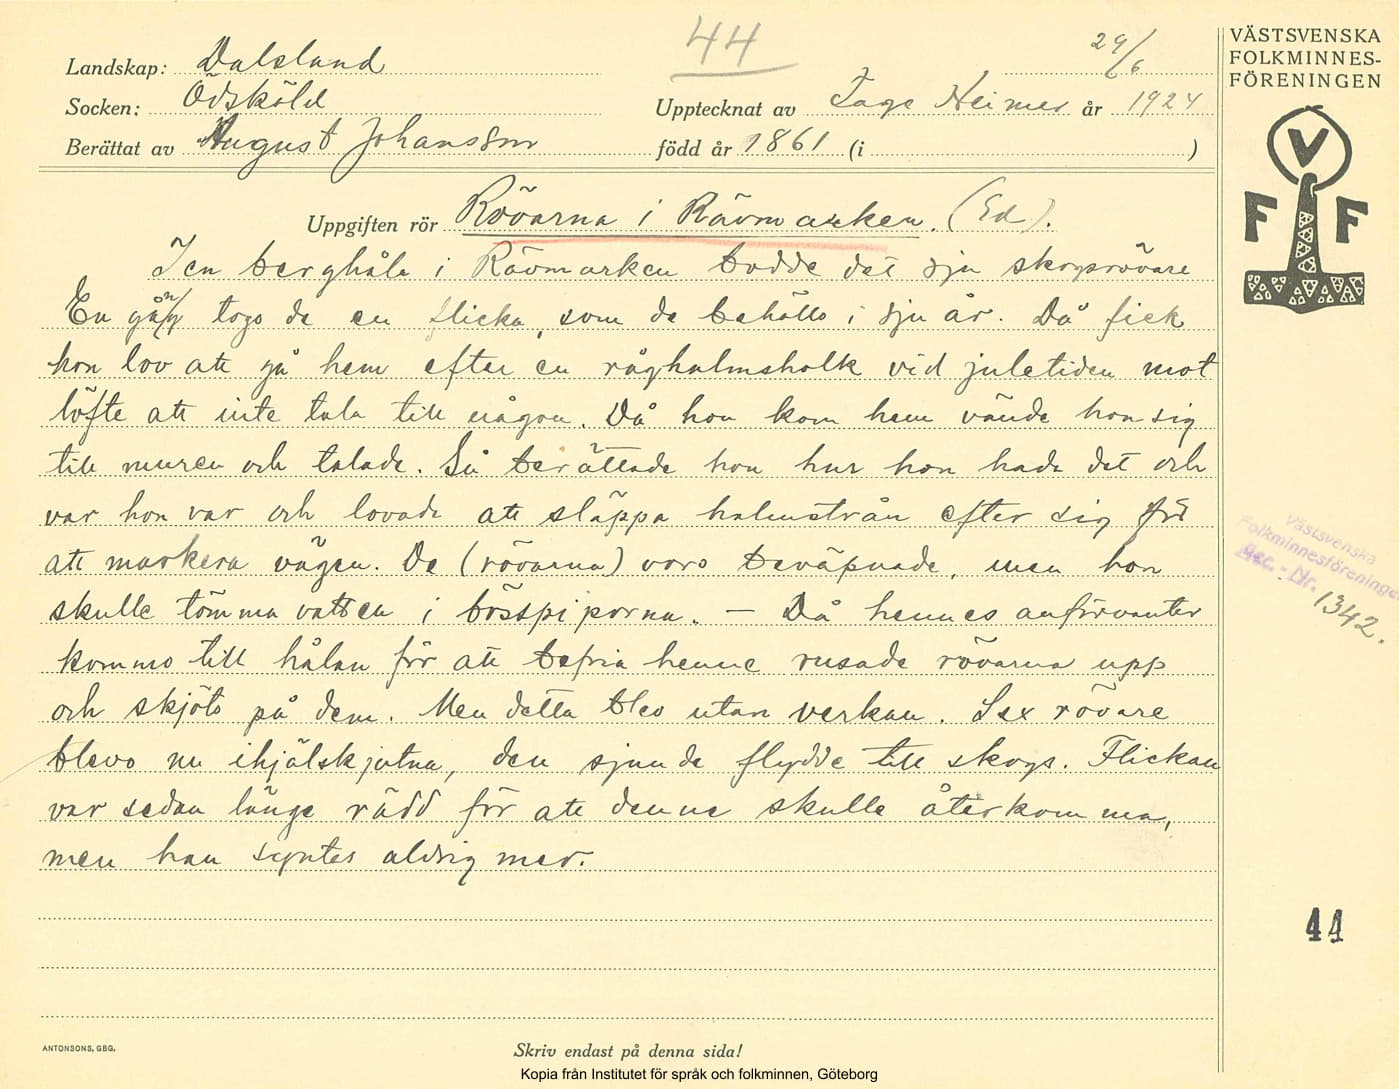 44
29/6
Landskap: Dalsland
Socken: Ödsköld
Upptecknat av Tage Heimer år 1924
Berättat av August Johansson född år 1861 (i )
Uppgiften rör Rövarna i Rävmarken. (Ed.).
I en berghåla i Rävmarken bodde det sju skogsrövare
En gång togo de en flicka, som de behöllo i sju år. Då fick
hon lov att gå hem efter en råghalmsholk vid juletiden mot
löfte att inte tala till någon. Då hon kom hem vände hon sig
till muren och talade. Så berättade hon hur hon hade det och
var hon var och lovade att släppa halmstrån efter sig för
att markera vägen. De (rövarna) voro beväpnade, men hon
skulle tömma vatten i bösspiporna. — Då hennes anförvanter
kommo till hålan för att befria henne rusade rövarna upp
och skjöto på dem. Men detta blev utan verkan. Sex rövare
blevo nu ihjälskjutna, den sjunde flydde till skogs. Flickan
var sedan länge rädd för att denne skulle återkomma,
men han syntes aldrig mer.
VÄSTSVENSKA
FOLKMINNES-
FÖRENINGEN
V
F F
Västsvenska
Folkminnesföreningen
Acc. - Nr. 1342.
44
ANTONSONS, GBG.
Skriv endast på denna sida!
Kopia från Institutet för språk och folkminnen, Göteborg